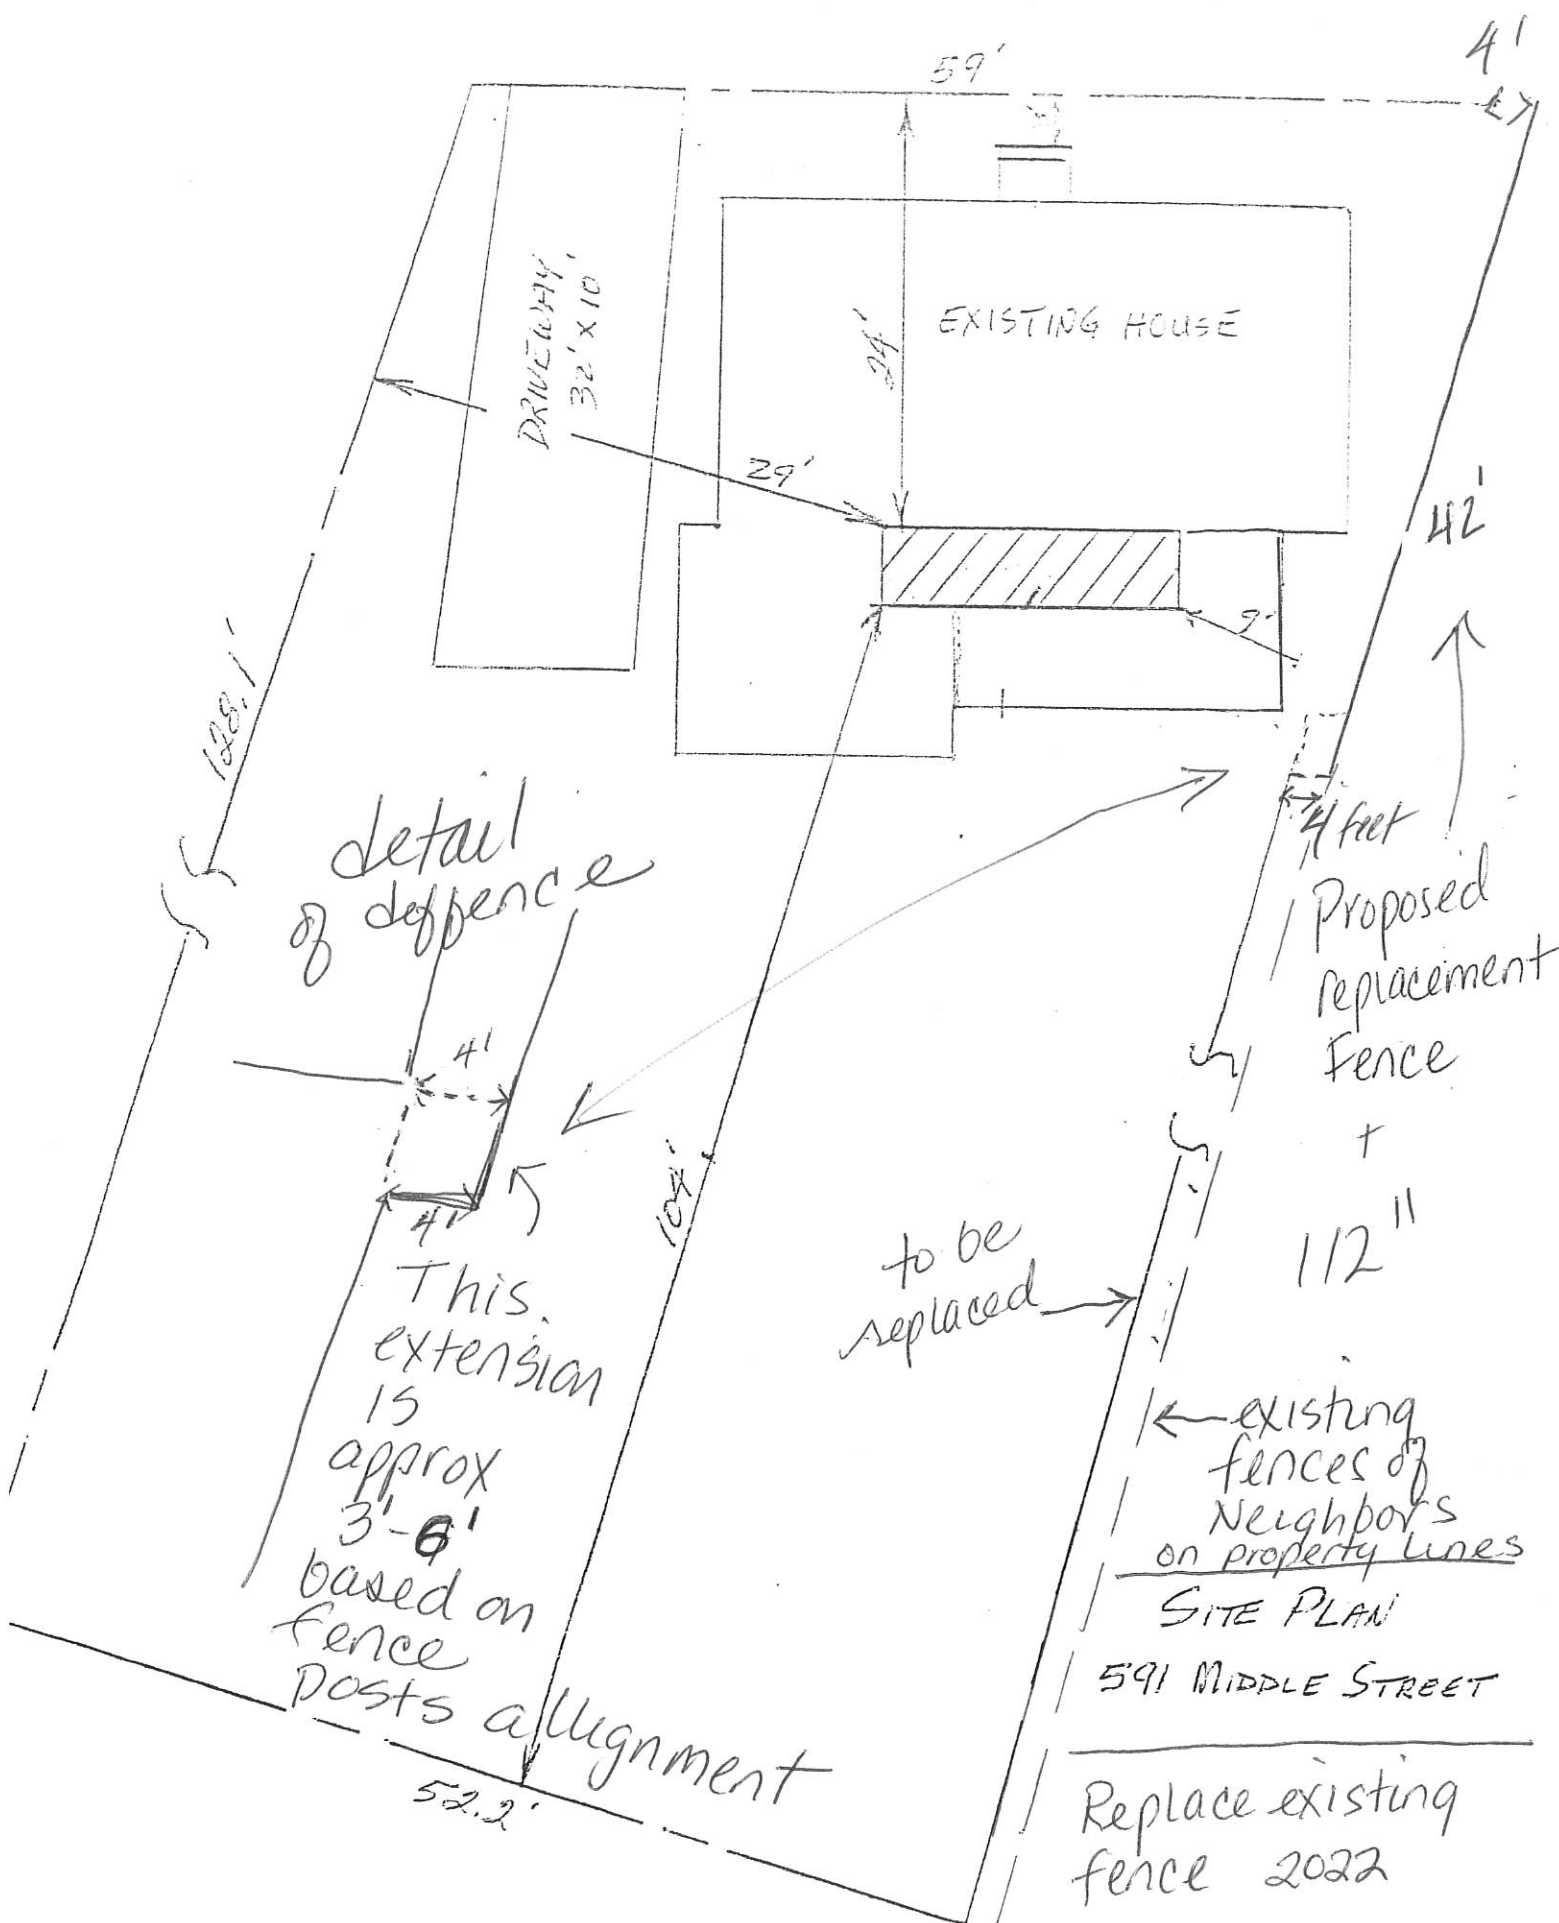 59'
4'
DRIVEWAY
32' x 10'
24'
EXISTING HOUSE
29'
42'
9'
128.1'
4 feet
detail
of deffence
Proposed
replacement
Fence
+
112"
4'
4'
104'
This
extension
is
approx
3'-6'
based on
fence
posts allignment
to be
replaced
existing
fences of
Neighbors
on property lines
SITE PLAN
591 MIDDLE STREET
52.2'
Replace existing
fence 2022